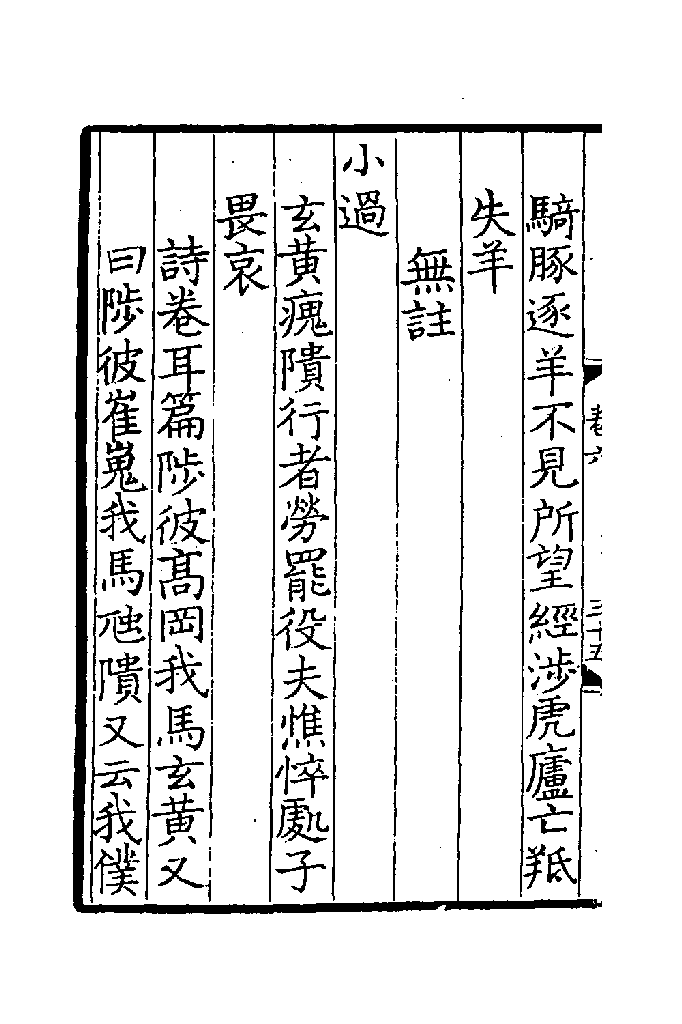 騎豚逐羊不見所望經涉虎廬亡羝
失羊
無註
小過
玄黄瘣隤行者勞罷役夫憔悴處子
畏哀
詩卷耳篇陟彼髙岡我馬玄黄又
曰陟彼崔嵬我馬虺隤又云我僕
卷六
三十五